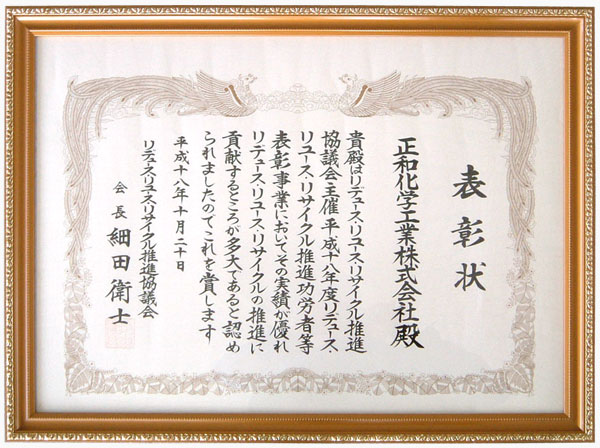 表彰状
正和化学工業株式会社殿
貴殿はリデュース・リユース・リサイクル推進
協議会主催平成十八年度リデュース・
リユース・リサイクル推進功労者等
表彰事業においてその実績が優れ
リデュース・リユース・リサイクルの推進に
貢献するところが多大であると認め
られましたのでこれを賞します
平成十八年十月二十日
リデュース・リユース・リサイクル推進協議会
会長 細田衛士